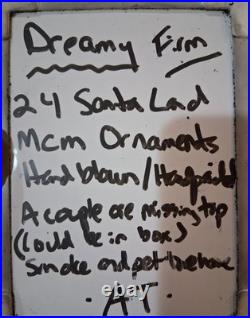 Dreamy Firm
24 Santa Land
Mcm Ornaments
Hand blown/Handpainted
A couple are missing top
(Could be in box)
Smoke and pet free home
· AT ·
ebay